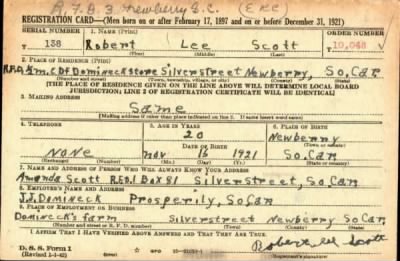 R.F.D. 3 Newberry S.C. (ERC)
REGISTRATION CARD—(Men born on or after February 17, 1897 and on or before December 31, 1921)
SERIAL NUMBER 1. NAME (Print) ORDER NUMBER
T 138 Robert Lee Scott 10,048
(First) (Middle) (Last)
2. PLACE OF RESIDENCE (Print)
Silverstreet Newberry, So. Car
(Number and street) (Town, township, village, or city) (County) (State)
[THE PLACE OF RESIDENCE GIVEN ON THE LINE ABOVE WILL DETERMINE LOCAL BOARD JURISDICTION; LINE 2 OF REGISTRATION CERTIFICATE WILL BE IDENTICAL]
3. MAILING ADDRESS
Same
[Mailing address if other than place indicated on line 2. If same insert word same]
4. TELEPHONE 5. AGE IN YEARS 6. PLACE OF BIRTH
20 Newberry
DATE OF BIRTH (Town or county)
None Nov 16 1921 So. Car
(Exchange) (Number) (Mo.) (Day) (Yr.) (State or country)
7. NAME AND ADDRESS OF PERSON WHO WILL ALWAYS KNOW YOUR ADDRESS
Amanda Scott R.F.D. 1 Box 81 Silverstreet, So. Car
8. EMPLOYER'S NAME AND ADDRESS
J.J. Domineck Prosperily, So Car
9. PLACE OF EMPLOYMENT OR BUSINESS
Domineck's farm Silverstreet Newberry So Car
(Number and street or R. F. D. number) (Town) (County) (State)
I AFFIRM THAT I HAVE VERIFIED ABOVE ANSWERS AND THAT THEY ARE TRUE.
D. S. S. Form 1
(Revised 1-1-42)
Robert Lee Scott